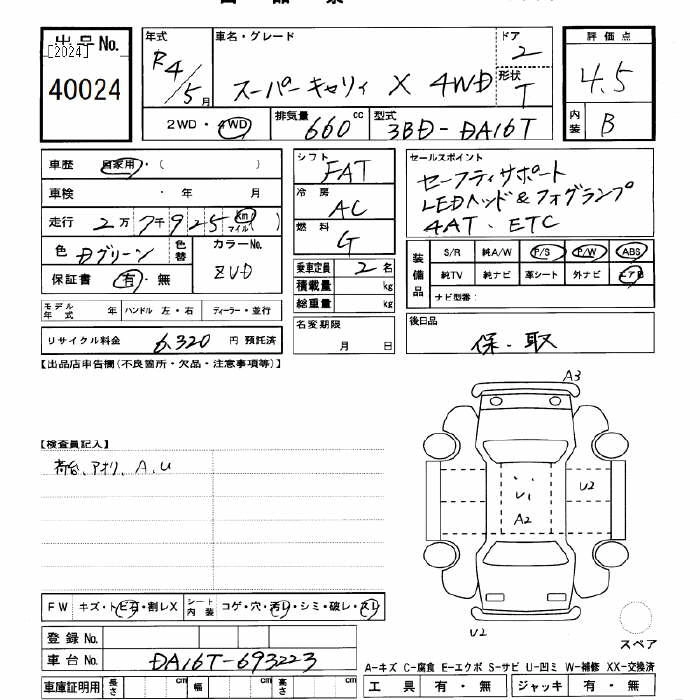 出品No.
[2024]
40024
年式
R4/5月
車名・グレード
スーパーキャリィ X 4WD
ドア
2
形状
T
評価点
4.5
内装
B
2WD・4WD
排気量
660cc
型式
3BD-DA16T
車歴 自家用・( )
車検 ・ 年 月
走行 2万7千925 Km マイル( )
色 Dグリーン
色替
カラーNo.
ZVD
保証書 有・無
モデル年式 年 ハンドル 左・右 ディーラー・並行
リサイクル料金 6,320 円 預託済
シフト
FAT
冷房
AC
燃料
G
乗車定員 2 名
積載量 kg
総重量 kg
名変期限
月 日
セールスポイント
セーフティサポート
LEDヘッド&フォグランプ
4AT、ETC
装備品
S/R 純A/W P/S P/W ABS
純TV 純ナビ 革シート 外ナビ エアB
ナビ型番:
後日品
保・取
【出品店申告欄(不良箇所・欠品・注意事項等)】
【検査員記入】
荷台、アオリ、A、U
A3
U1
A2
U2
U2
スペア
FW キズ・トビ石・割レX
シート内装 コゲ・穴・汚レ・シミ・破レ・スレ
登録No.
車台No. DA16T-693223
車庫証明用 長さ cm 幅 cm 高さ cm
A-キズ C-腐食 E-エクボ S-サビ U-凹ミ W-補修 XX-交換済
工具 有・無 ジャッキ 有・無